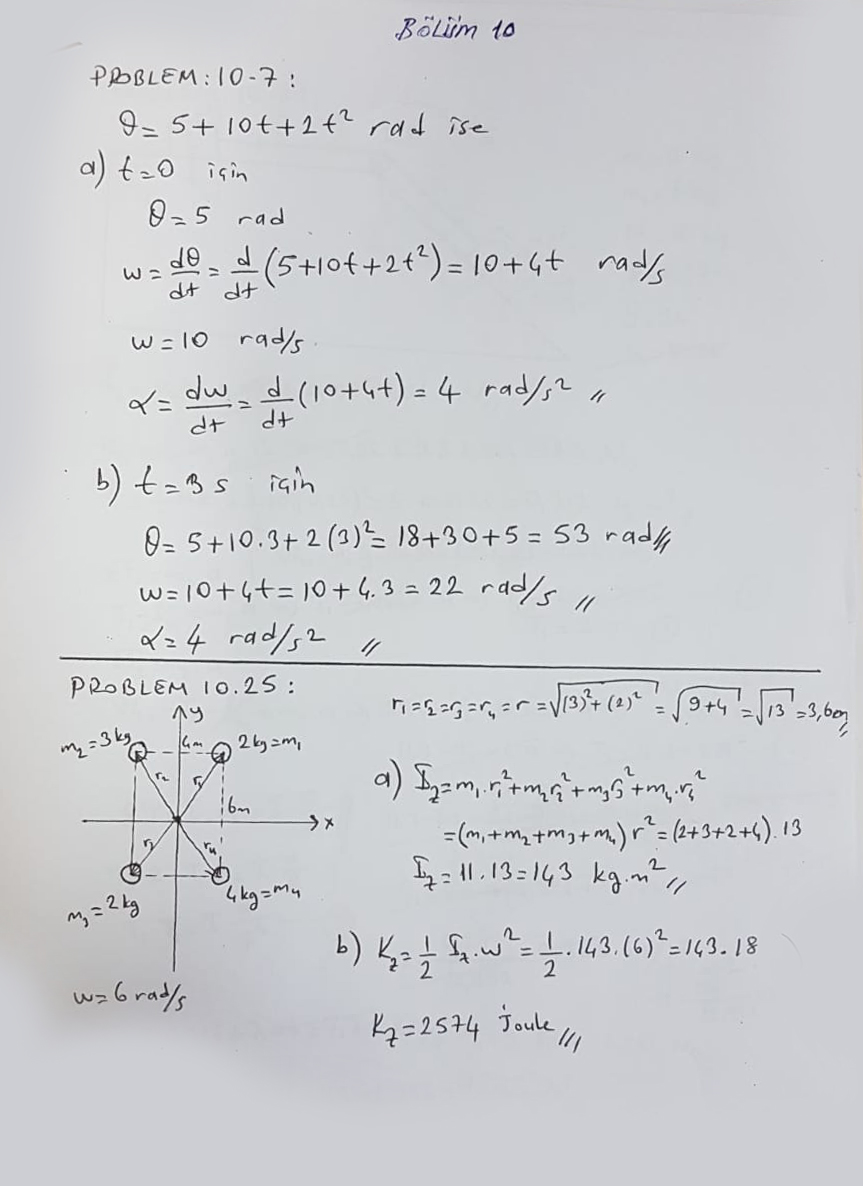 Bölüm 10
PROBLEM: 10-7:
θ = 5 + 10t + 2t² rad ise
a) t=0 için
θ = 5 rad
w = dθ/dt = d/dt (5+10t+2t²) = 10+4t rad/s
w = 10 rad/s
α = dw/dt = d/dt (10+4t) = 4 rad/s² //
b) t = 3 s için
θ = 5+10.3+2(3)² = 18+30+5 = 53 rad //
w = 10+4t = 10+4.3 = 22 rad/s //
α = 4 rad/s² //
PROBLEM 10.25:
r₁=r₂=r₃=r₄=r=√(3)²+(2)² = √9+4 = √13 = 3,60m //
y
m₂=3kg
4m
2kg=m₁
r₂
r₁
6m
x
r₃
r₄
m₃=2kg
4kg=m₄
w=6 rad/s
a) I_z = m₁.r₁²+m₂r₂²+m₃r₃²+m₄.r₄²
=(m₁+m₂+m₃+m₄) r² = (2+3+2+4).13
I_z = 11.13 = 143 kg.m² //
b) K_z = 1/2 I_z.w² = 1/2 .143.(6)² = 143.18
K_z = 2574 Joule ///